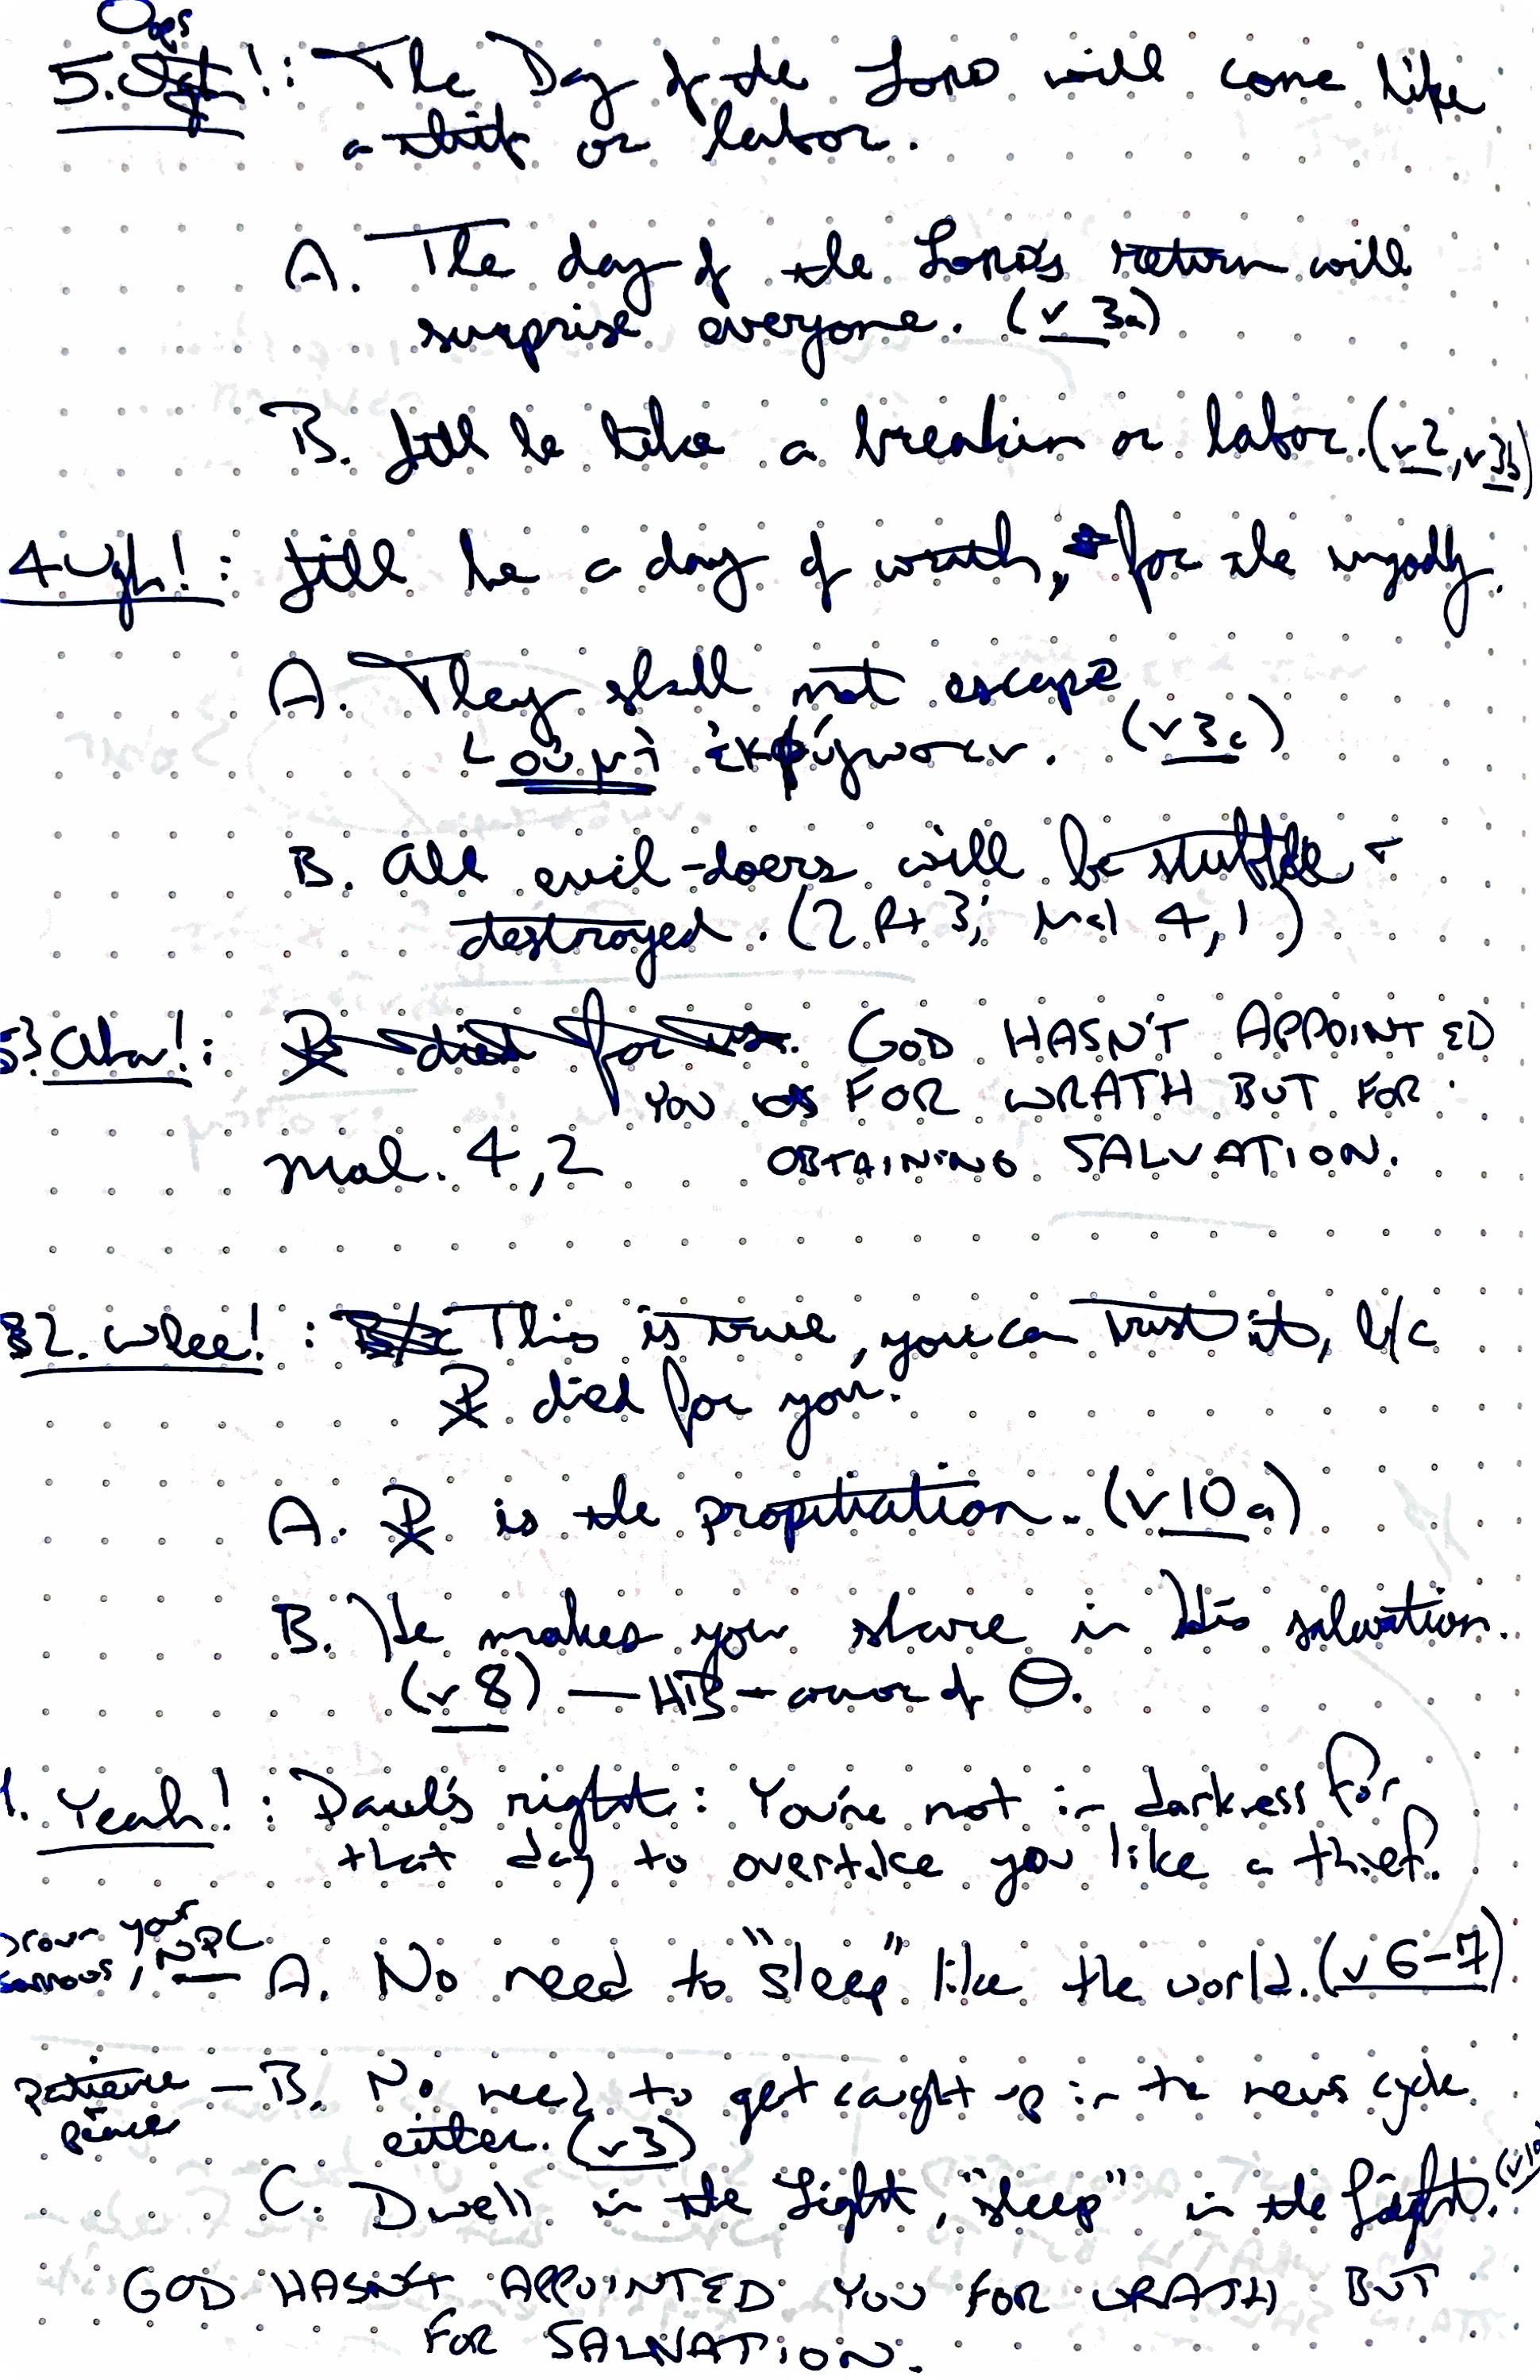 Oops
5. Ugh!: The Day of the LORD will come like
a thief or labor.
A. The day of the LORD's return will
surprise everyone. (v 3a)
B. It'll be like a breakin or labor. (v2, v3b)
4 Ugh!: It'll be a day of wrath, for the ungodly.
A. They shall not escape
οὐ μὴ ἐκφύγωσιν. (v3c)
B. All evil-doers will be stubble +
destroyed. (2 Pt 3; Mal 4,1)
3 Aha!: ☧ died for us. GOD HASN'T APPOINTED
YOU FOR WRATH BUT FOR
Mal. 4,2 OBTAINING SALVATION.
2. Whee!: This is true, you can trust it, b/c
☧ died for you.
A. ☧ is the propitiation. (v 10a)
B. He makes you share in His salvation.
(v 8) — armor of Θ.
1. Yeah!: Paul's right: You're not in darkness for
that day to overtake you like a thief.
drown your
sorrows, NPC
A. No need to "sleep" like the world. (v 6-7)
patience — B. No need to get caught up in the news cycle
peace either. (v3)
C. Dwell in the Light, "sleep" in the Light. (v10
GOD HASN'T APPOINTED YOU FOR WRATH BUT
FOR SALVATION.